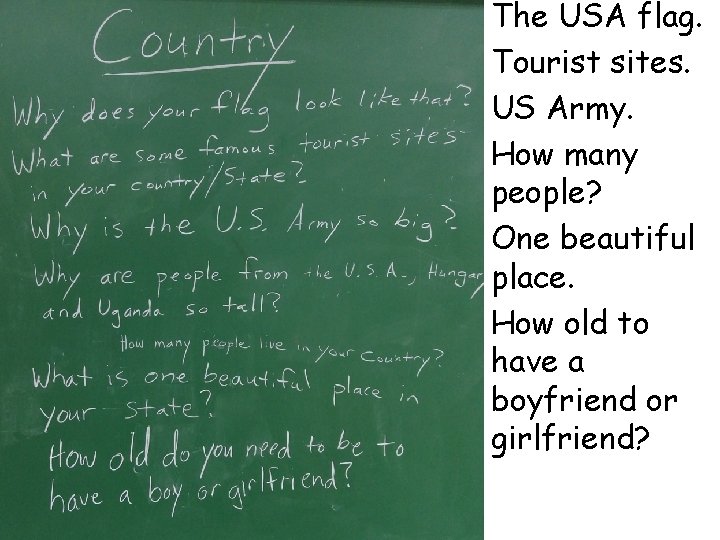 Country
Why does your flag look like that?
What are some famous tourist sites
in your country/State?
Why is the U.S. Army so big?
Why are people from the U.S.A., Hungary
and Uganda so tall?
How many people live in your country?
What is one beautiful place in
your state?
How old do you need to be to
have a boy or girlfriend?
The USA flag.
Tourist sites.
US Army.
How many
people?
One beautiful
place.
How old to
have a
boyfriend or
girlfriend?